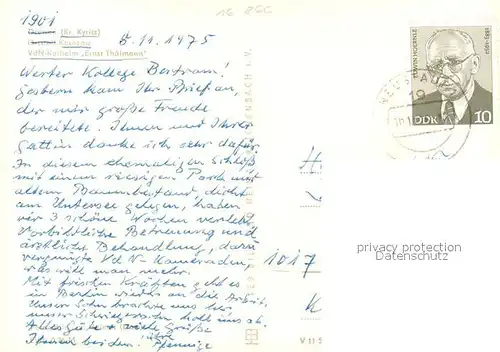 1901
16 866
(Kr. Kyritz)
VdN-Kurheim „Ernst Thälmann"
5.11.1975
Werter Kollege Bertram!
Gestern kam Ihr Brief an,
der mir große Freude
bereitete. Ihnen und Ihrer
Gattin danke ich sehr dafür.
In diesem ehemaligen Schloß
mit einem riesigen Park mit
altem Baumbestand, direkt
am Untersee gelegen, haben
wir 3 schöne Wochen verlebt.
Vorbildliche Betreuung und
ärztliche Behandlung, dazu
vergnügte VdN-Kameraden,
was will man mehr.
Mit frischen Kräften geht es
in Berlin wieder an die Arbeit.
Unser
unser Schwiegersohn holt uns ab.
Alles Gute + viele Grüße
Ihnen beiden. Ihre
EDWIN HOERNLE
1883-1952
DDR 10
1017
V 11 5
privacy protection
Datenschutz